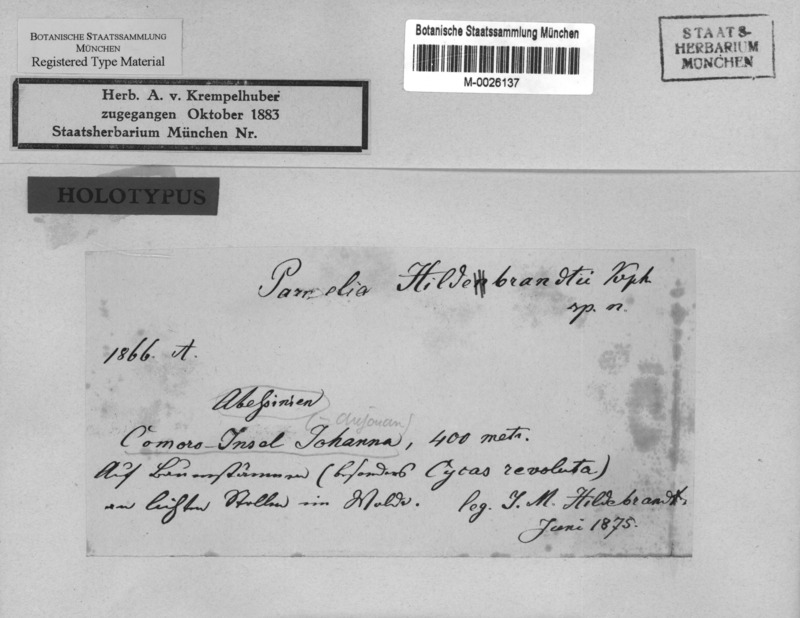 BOTANISCHE STAATSSAMMLUNG
MÜNCHEN
Registered Type Material
Herb. A. v. Krempelhuber
zugegangen Oktober 1883
Staatsherbarium München Nr.
Botanische Staatssammlung München
M-0026137
STAATS-
HERBARIUM
MÜNCHEN
HOLOTYPUS
Parmelia Hildebrandtii Krph.
sp. n.
1866. A.
Abessinien
(= Anjouan)
Comoro-Insel Johanna, 400 metr.
Auf Baumstämmen (besonders Cycas revoluta)
an lichten Stellen im Walde. leg. J. M. Hildebrandt.
Juni 1875.